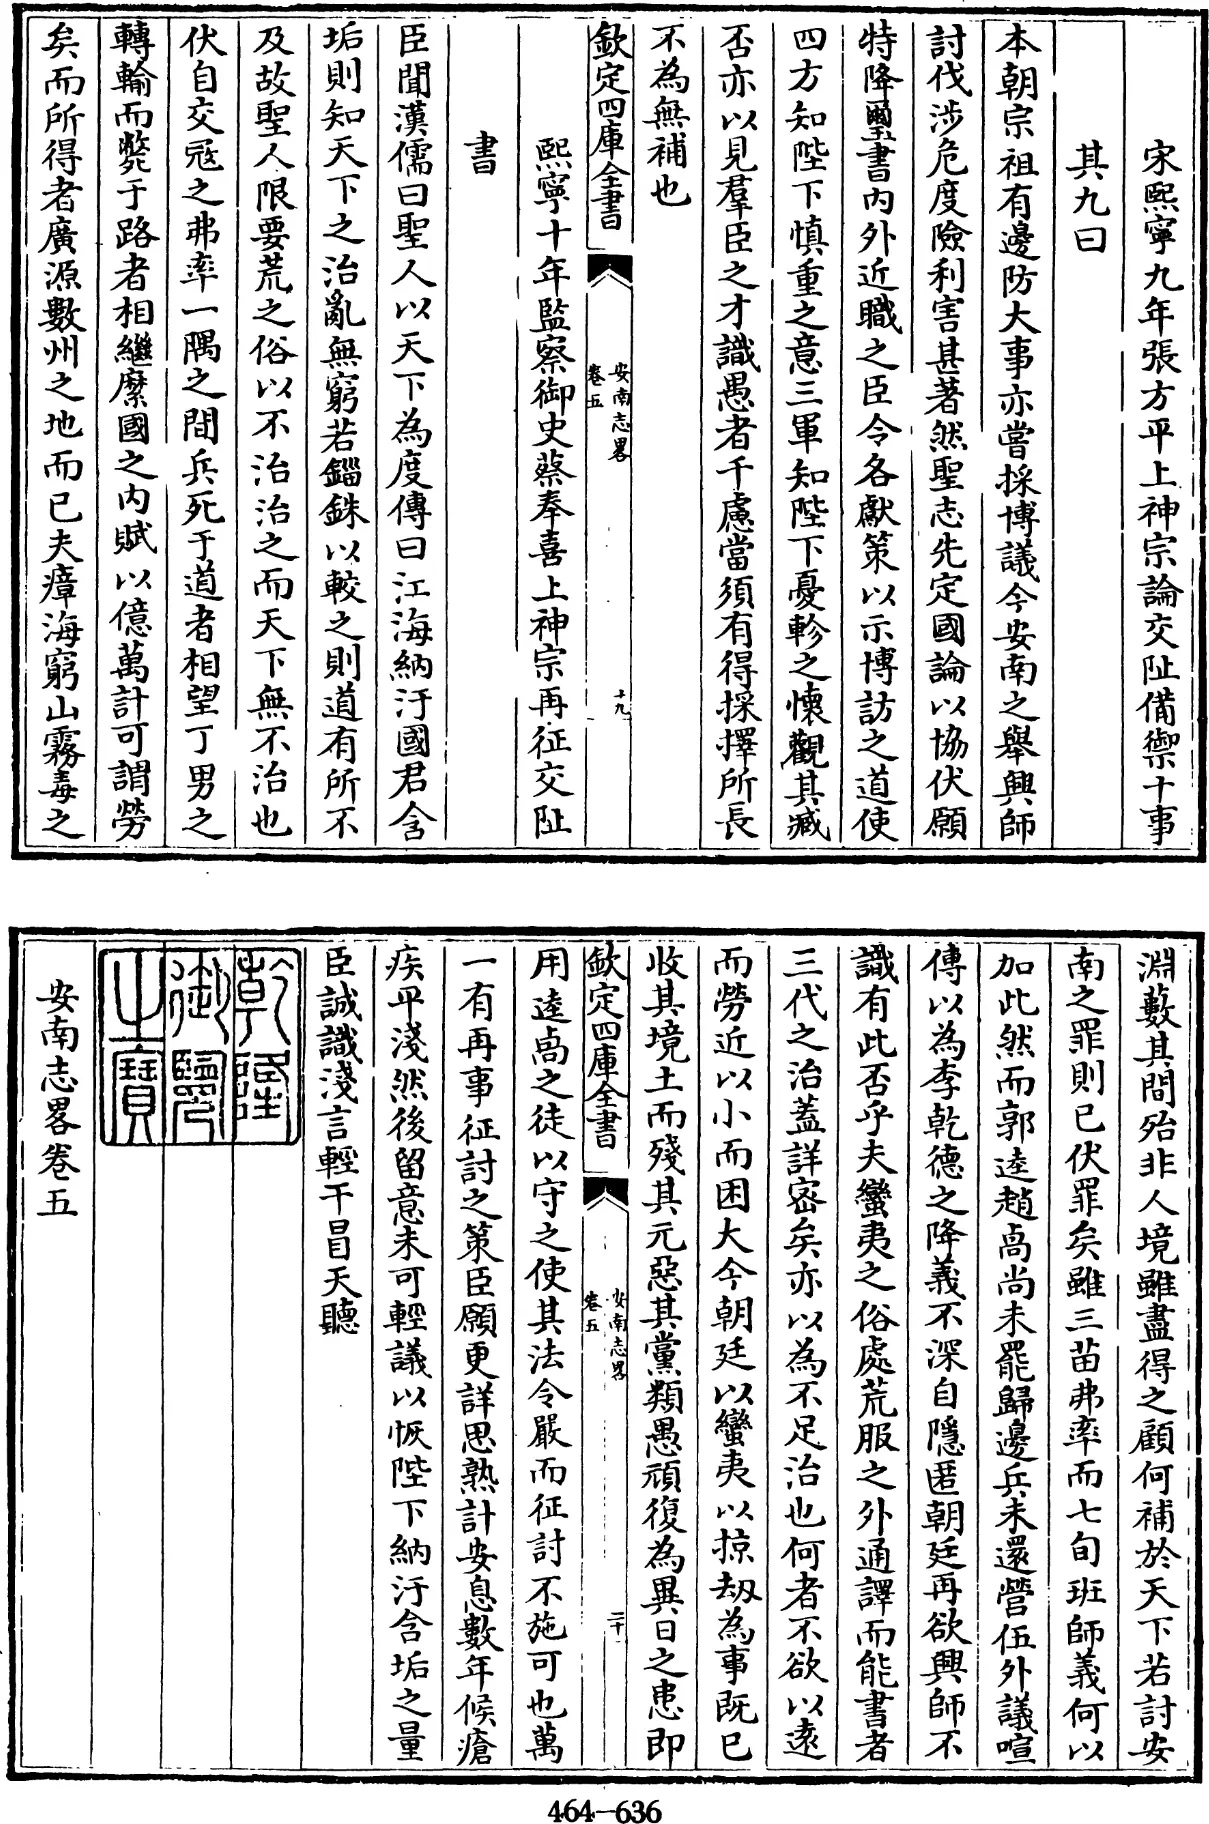 宋熙寧九年張方平上神宗論交阯備禦十事
其九曰
本朝宗祖有邊防大事亦嘗採博議今安南之舉興師
討伐涉危度險利害甚著然聖志先定國論以協伏願
特降璽書內外近職之臣令各獻策以示博訪之道使
四方知陛下慎重之意三軍知陛下憂軫之懷觀其臧
否亦以見羣臣之才識愚者千慮當須有得採擇所長
不為無補也
欽定四庫全書
安南志畧
卷五
十九
熙寧十年監察御史蔡奉喜上神宗再征交阯
書
臣聞漢儒曰聖人以天下為度傳曰江海納汙國君含
垢則知天下之治亂無窮若錙銖以較之則道有所不
及故聖人限要荒之俗以不治治之而天下無不治也
伏自交寇之弗率一隅之間兵死于道者相望丁男之
轉輸而斃于路者相繼縻國之內賦以億萬計可謂勞
矣而所得者廣源數州之地而已夫瘴海窮山霧毒之
淵藪其間殆非人境雖盡得之顧何補於天下若討安
南之罪則已伏罪矣雖三苗弗率而七旬班師義何以
加此然而郭逵趙卨尚未罷歸邊兵未還營伍外議喧
傳以為李乾德之降義不深自隱匿朝廷再欲興師不
識有此否乎夫蠻夷之俗處荒服之外通譯而能書者
三代之治蓋詳密矣亦以為不足治也何者不欲以遠
而勞近以小而困大今朝廷以蠻夷以掠刼為事既已
收其境土而殘其元惡其黨類愚頑復為異日之患即
欽定四庫全書
安南志畧
卷五
二十
用逵卨之徒以守之使其法令嚴而征討不施可也萬
一有再事征討之策臣願更詳思熟計安息數年候瘡
疾平淺然後留意未可輕議以恢陛下納汙含垢之量
臣誠識淺言輕干冒天聽
乾隆
御覽
之寶
安南志畧卷五
464-636